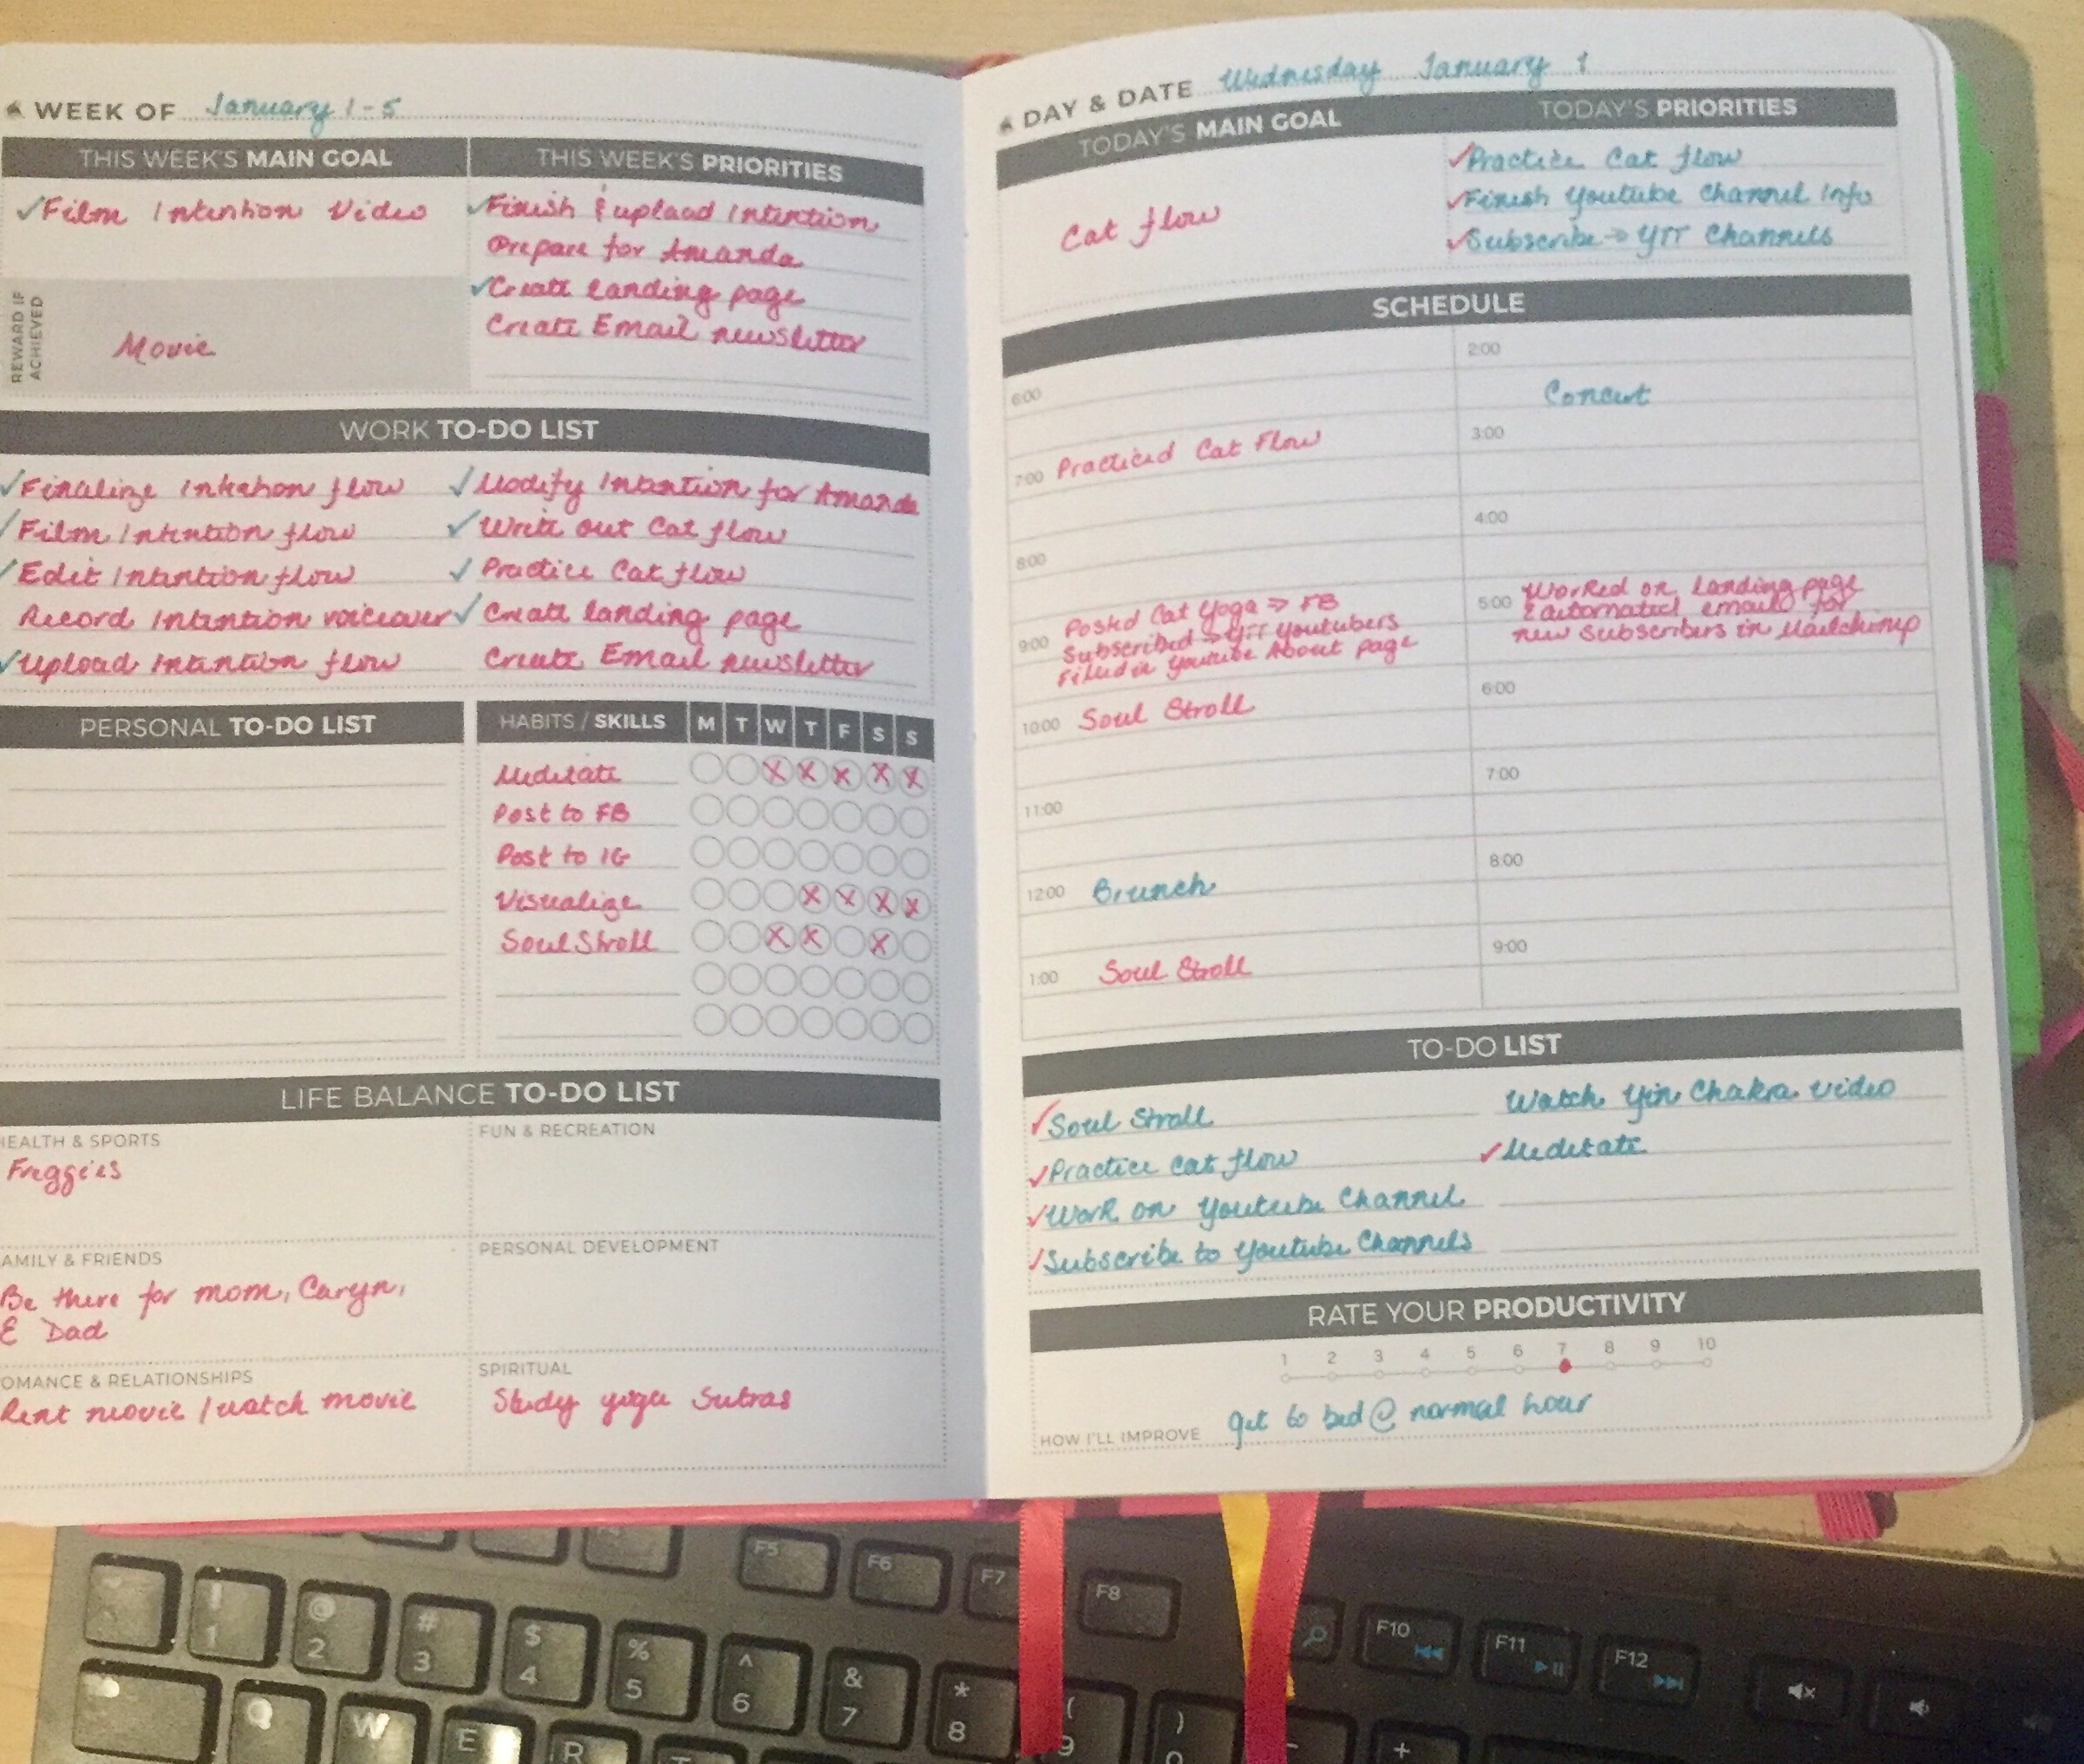 WEEK OF January 1-5
THIS WEEK'S MAIN GOAL
✓Film Intention Video
REWARD IF
ACHIEVED
Movie
THIS WEEK'S PRIORITIES
✓Finish & upload Intention
Prepare for Amanda
✓Create landing page
Create Email newsletter
WORK TO-DO LIST
✓Finalize intention flow
✓Film Intention flow
✓Edit Intention flow
Record Intention voiceover
✓Upload Intention flow
✓Modify Intention for Amanda
✓Write out Cat flow
✓Practice Cat flow
✓Create landing page
Create Email newsletter
PERSONAL TO-DO LIST
HABITS / SKILLS M T W T F S S
Meditate X X X X X
Post to FB
Post to IG
Visualize X X X X
Soul Stroll X X X
LIFE BALANCE TO-DO LIST
EALTH & SPORTS
Freggies
FUN & RECREATION
AMILY & FRIENDS
Be there for mom, Caryn,
& Dad
PERSONAL DEVELOPMENT
OMANCE & RELATIONSHIPS
Rent movie / watch movie
SPIRITUAL
Study yoga Sutras
DAY & DATE Wednesday January 1
TODAY'S MAIN GOAL
Cat flow
TODAY'S PRIORITIES
✓Practice Cat flow
✓Finish Youtube Channel Info
✓Subscribe → YTT Channels
SCHEDULE
6:00
7:00 Practiced Cat Flow
8:00
Posted Cat Yoga ⇒ FB
9:00 Subscribed → YTT Youtubers
Filled in Youtube About page
10:00 Soul Stroll
11:00
12:00 Brunch
1:00 Soul Stroll
2:00
Concert
3:00
4:00
5:00 Worked on landing page
& automated email for
new subscribers in Mailchimp
6:00
7:00
8:00
9:00
TO-DO LIST
✓Soul Stroll
✓Practice cat flow
✓Work on Youtube Channel
✓Subscribe to Youtube Channels
Watch Yin Chakra video
✓Meditate
RATE YOUR PRODUCTIVITY
1 2 3 4 5 6 7 8 9 10
HOW I'LL IMPROVE get to bed @ normal hour
F5 F6 F7 F8 F10 F11 F12
! 1 @ 2 # 3 $ 4 % 5 ^ 6 & 7 * 8 ( 9 ) 0 - +
Q W E R